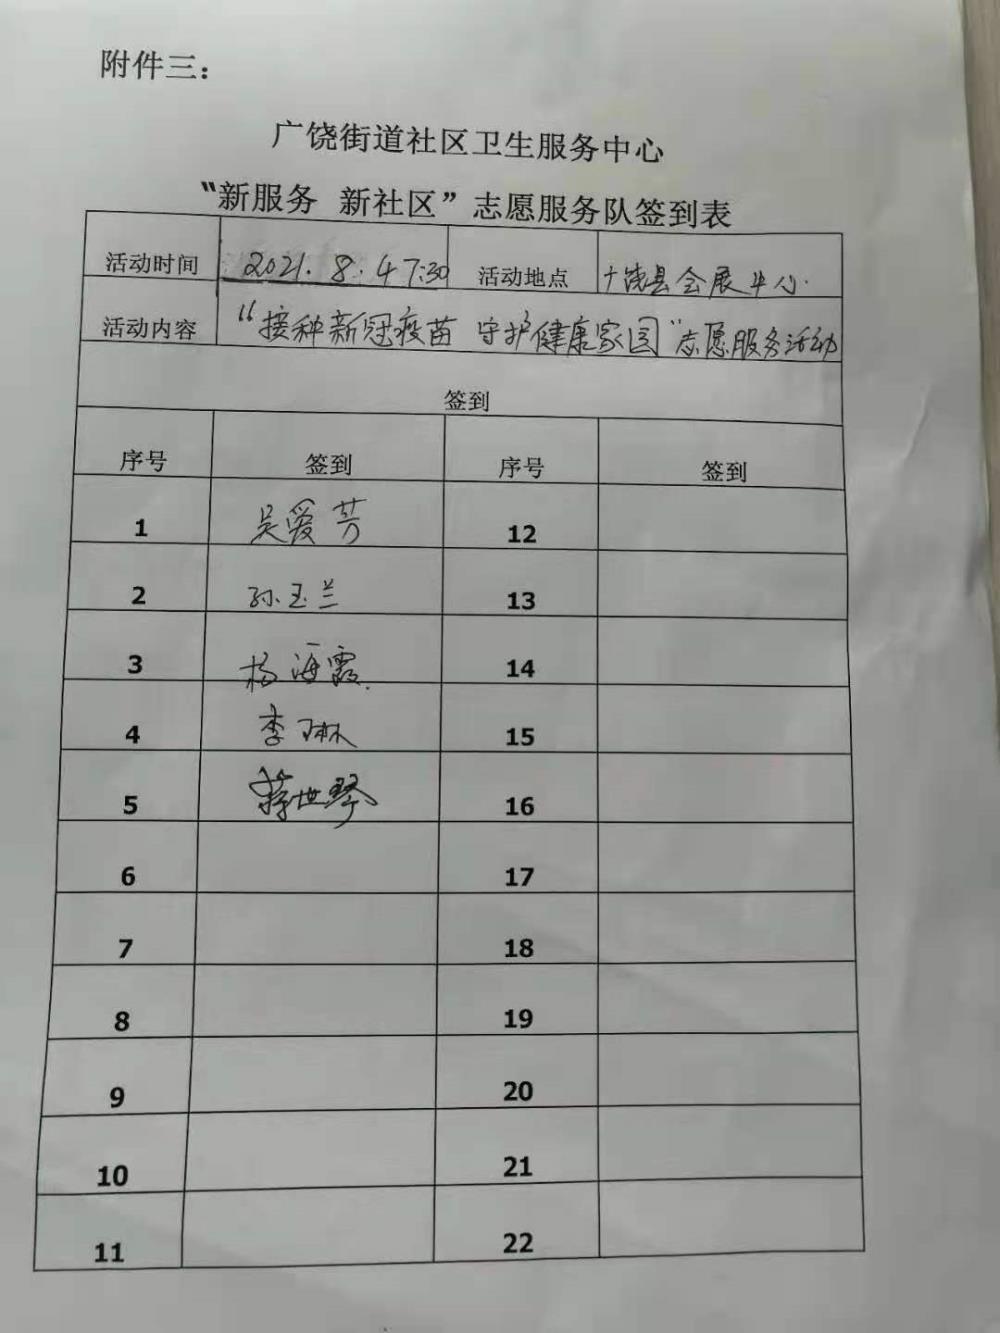 附件三：
广饶街道社区卫生服务中心
“新服务 新社区”志愿服务队签到表
活动时间 2021.8.4 7:30 活动地点 广饶县会展中心.
活动内容 “接种新冠疫苗 守护健康家园”志愿服务活动
签到
序号 签到 序号 签到
1 吴爱芳 12
2 孙玉兰 13
3 杨海霞. 14
4 李琳 15
5 蒋世琴 16
6 17
7 18
8 19
9 20
10 21
11 22